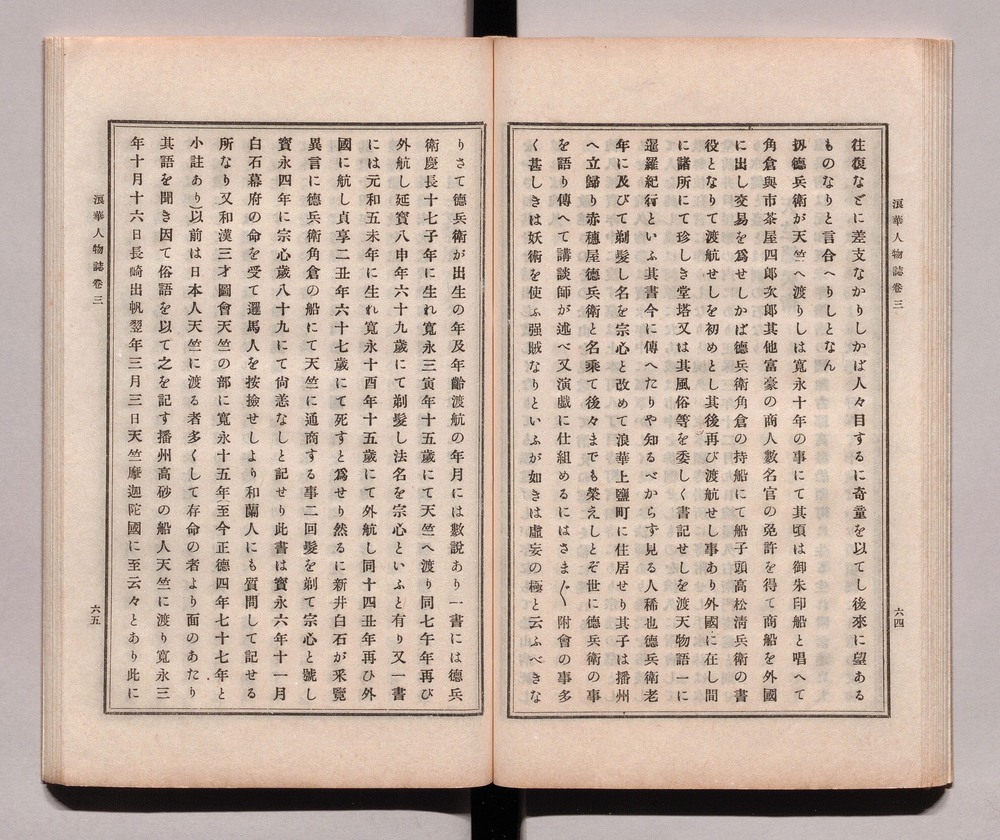 浪華人物誌卷三
六四
往復などに差支なかりしかば人々目するに奇童を以てし後來に望ある
ものなりと言合へりしとなん
扨德兵衛が天竺へ渡りしは寛永十年の事にて其頃は御朱印船と唱へて
角倉與市茶屋四郎次郎其他富豪の商人數名官の免許を得て商船を外國
に出し交易を爲せしかば德兵衛角倉の持船にて船子頭高松淸兵衛の書
役となりて渡航せしを初めとし其後再び渡航せし事あり外國に在し間
に諸所にて珍しき堂塔又は其風俗等を委しく書記せしを渡天物語一に
暹羅紀行といふ其書今に傳へたりや知るべからず見る人稀也德兵衛老
年に及びて剃髮し名を宗心と改めて浪華上鹽町に住居せり其子は播州
へ立歸り赤穗屋德兵衛と名乘て後々までも榮えしとぞ世に德兵衛の事
を語り傳へて講談師が述べ又演戲に仕組めるにはさま〴〵附會の事多
く甚しきは妖術を使ふ强賊なりといふが如きは虛妄の極と云ふべきな
りさて德兵衛が出生の年及年齡渡航の年月には數說あり一書には德兵
衛慶長十七子年に生れ寛永三寅年十五歲にて天竺へ渡り同七午年再び
外航し延寶八申年六十九歲にて剃髮し法名を宗心といふと有り又一書
には元和五未年に生れ寛永十酉年十五歲にて外航し同十四丑年再ひ外
國に航し貞享二丑年六十七歲にて死すと爲せり然るに新井白石が釆覽
異言に德兵衛角倉の船にて天竺に通商する事二回髮を剃て宗心と號し
寳永四年に宗心歲八十九にて尙恙なしと記せり此書は寳永六年十一月
白石幕府の命を受て邏馬人を按撿せしより和蘭人にも質問して記せる
所なり又和漢三才圖會天竺の部に寛永十五年(至今正德四年七十七年と
小註あり)以前は日本人天竺に渡る者多くして存命の者より面のあたり
其語を聞き因て俗語を以て之を記す播州高砂の船人天竺に渡り寛永三
年十月十六日長崎出帆翌年三月三日天竺摩迦陀國に至云々とあり此に
浪華人物誌卷三
六五